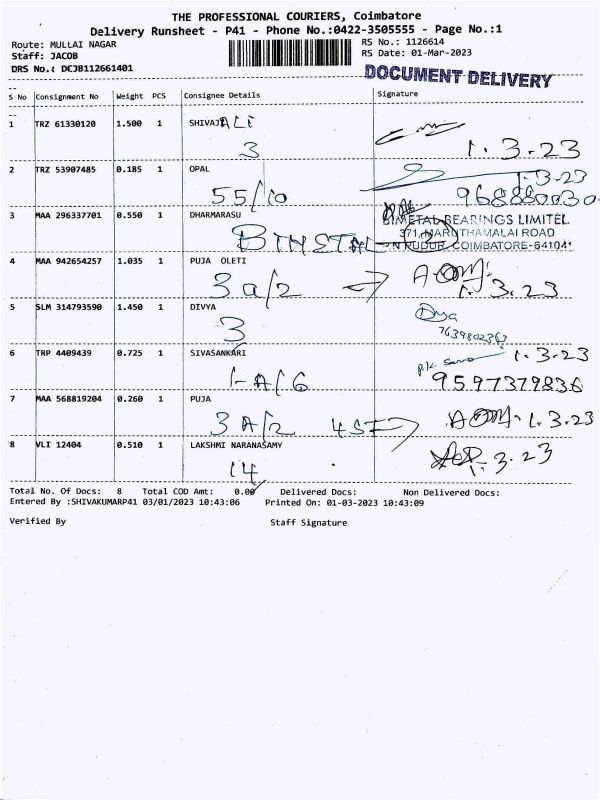 THE PROFESSIONAL COURIERS, Coimbatore
Delivery Runsheet - P41 - Phone No.:0422-3505555 - Page No.:1
Route: MULLAI NAGAR
RS No.: 1126614
Staff: JACOB
RS Date: 01-Mar-2023
DRS No.: DCJB112661401
DOCUMENT DELIVERY
S No Consignment No Weight PCS Consignee Details Signature
1 TRZ 61330120 1.500 1 SHIVAJI
3
1.3.23
2 TRZ 53907485 0.185 1 OPAL
1.3-23
55/10
968880030
3 MAA 296337701 0.550 1 DHARMARASU
BIMETAL BEARINGS LIMITED
371, MARUTHAMALAI ROAD
COIMBATORE-641041
4 MAA 942654257 1.035 1 PUJA OLETI
3 a/2
1.3.23
5 SLM 314793590 1.450 1 DIVYA
3
7639802363
6 TRP 4409439 0.725 1 SIVASANKARI
1.3-23
1-A/6
9597379836
7 MAA 568819204 0.260 1 PUJA
3 A/2
1.3.23
8 VLI 12404 0.510 1 LAKSHMI NARANASAMY
14
1.3.23
Total No. Of Docs: 8 Total COD Amt: 0.00 Delivered Docs: Non Delivered Docs:
Entered By :SHIVAKUMARP41 03/01/2023 10:43:06 Printed On: 01-03-2023 10:43:09
Verified By Staff Signature